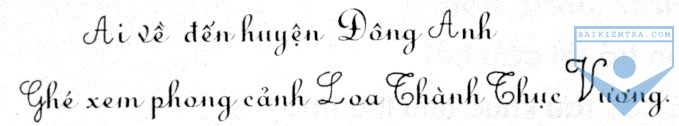 Ai về đến huyện Đông Anh
Ghé xem phong cảnh Loa Thành Thục Vương.
BAIKIEMTRA.COM